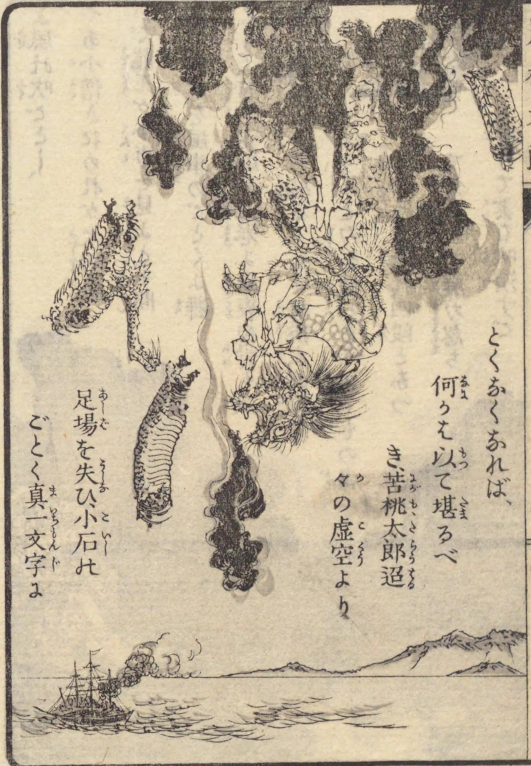 とくなくなれば、
何かは以て堪るべ
き、苦桃太郎迢
々の虚空より
足場を失ひ、小石の
ごとく真一文字に